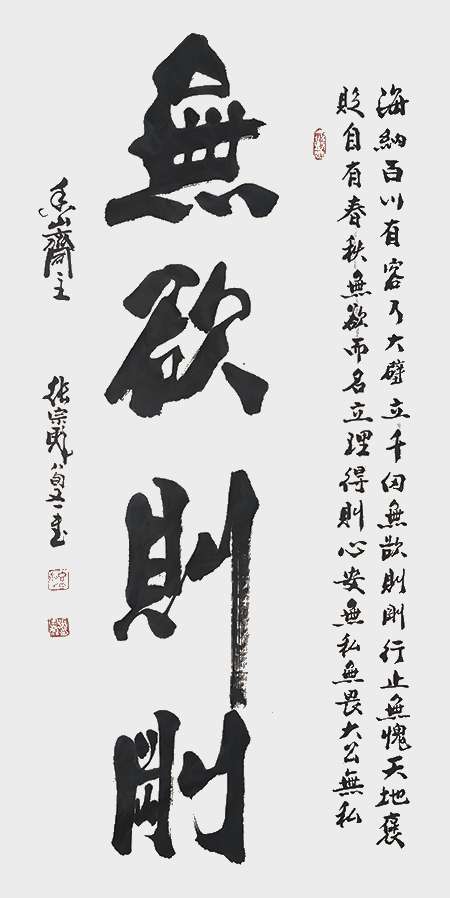 海納百川有容乃大壁立千仞無欲則剛行止無愧天地褒
貶自有春秋無欲而名立理得則心安無私無畏大公無私
無欲則剛
香山齋主
張宗彪八旬又一書